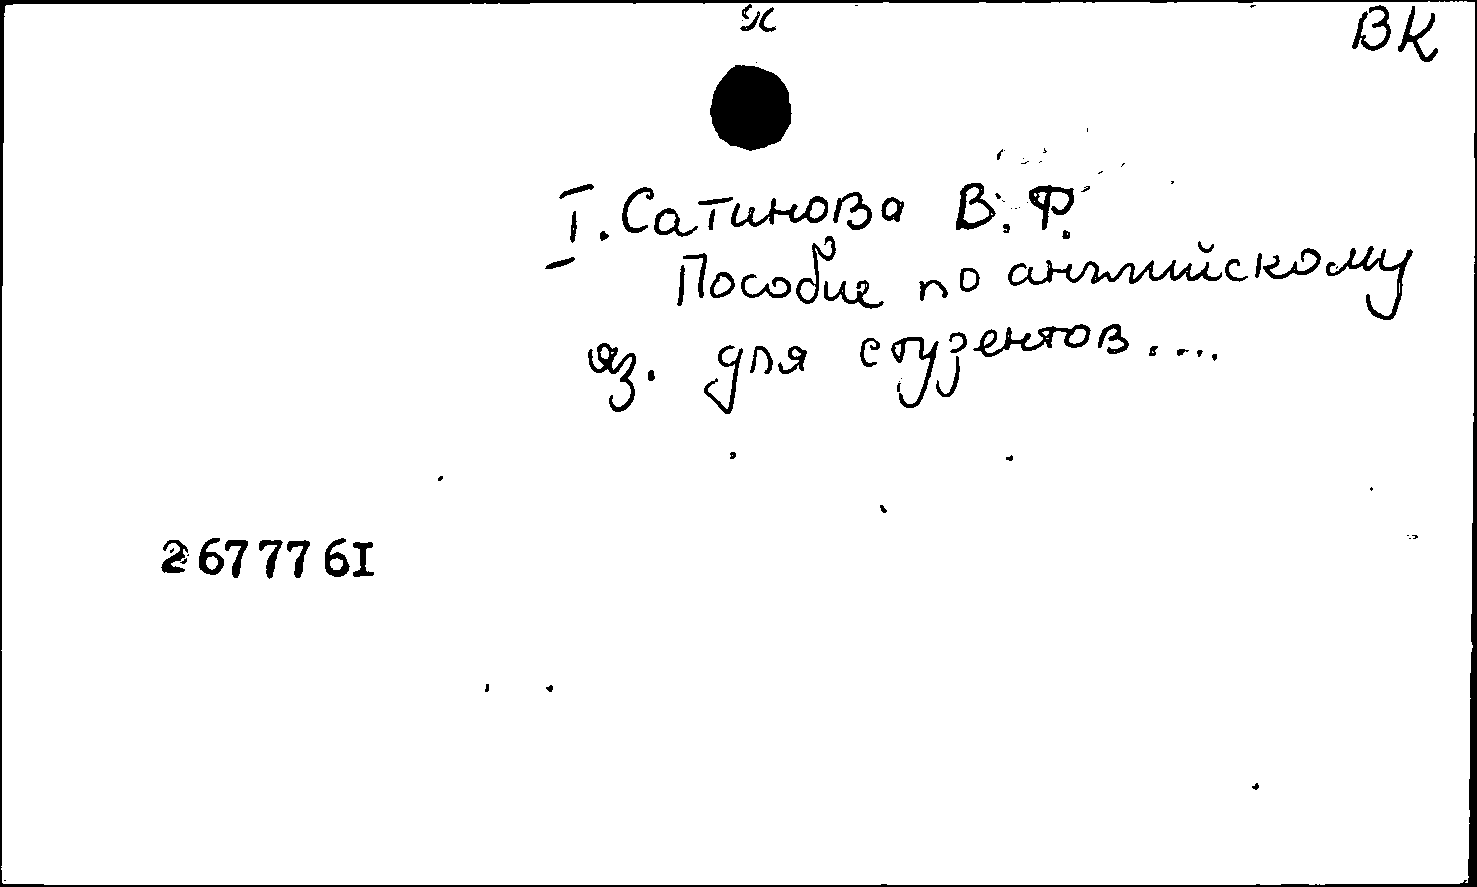 ВК
I. Сатинова В.Ф.
Пособие по английскому
яз. для студентов....
267776I